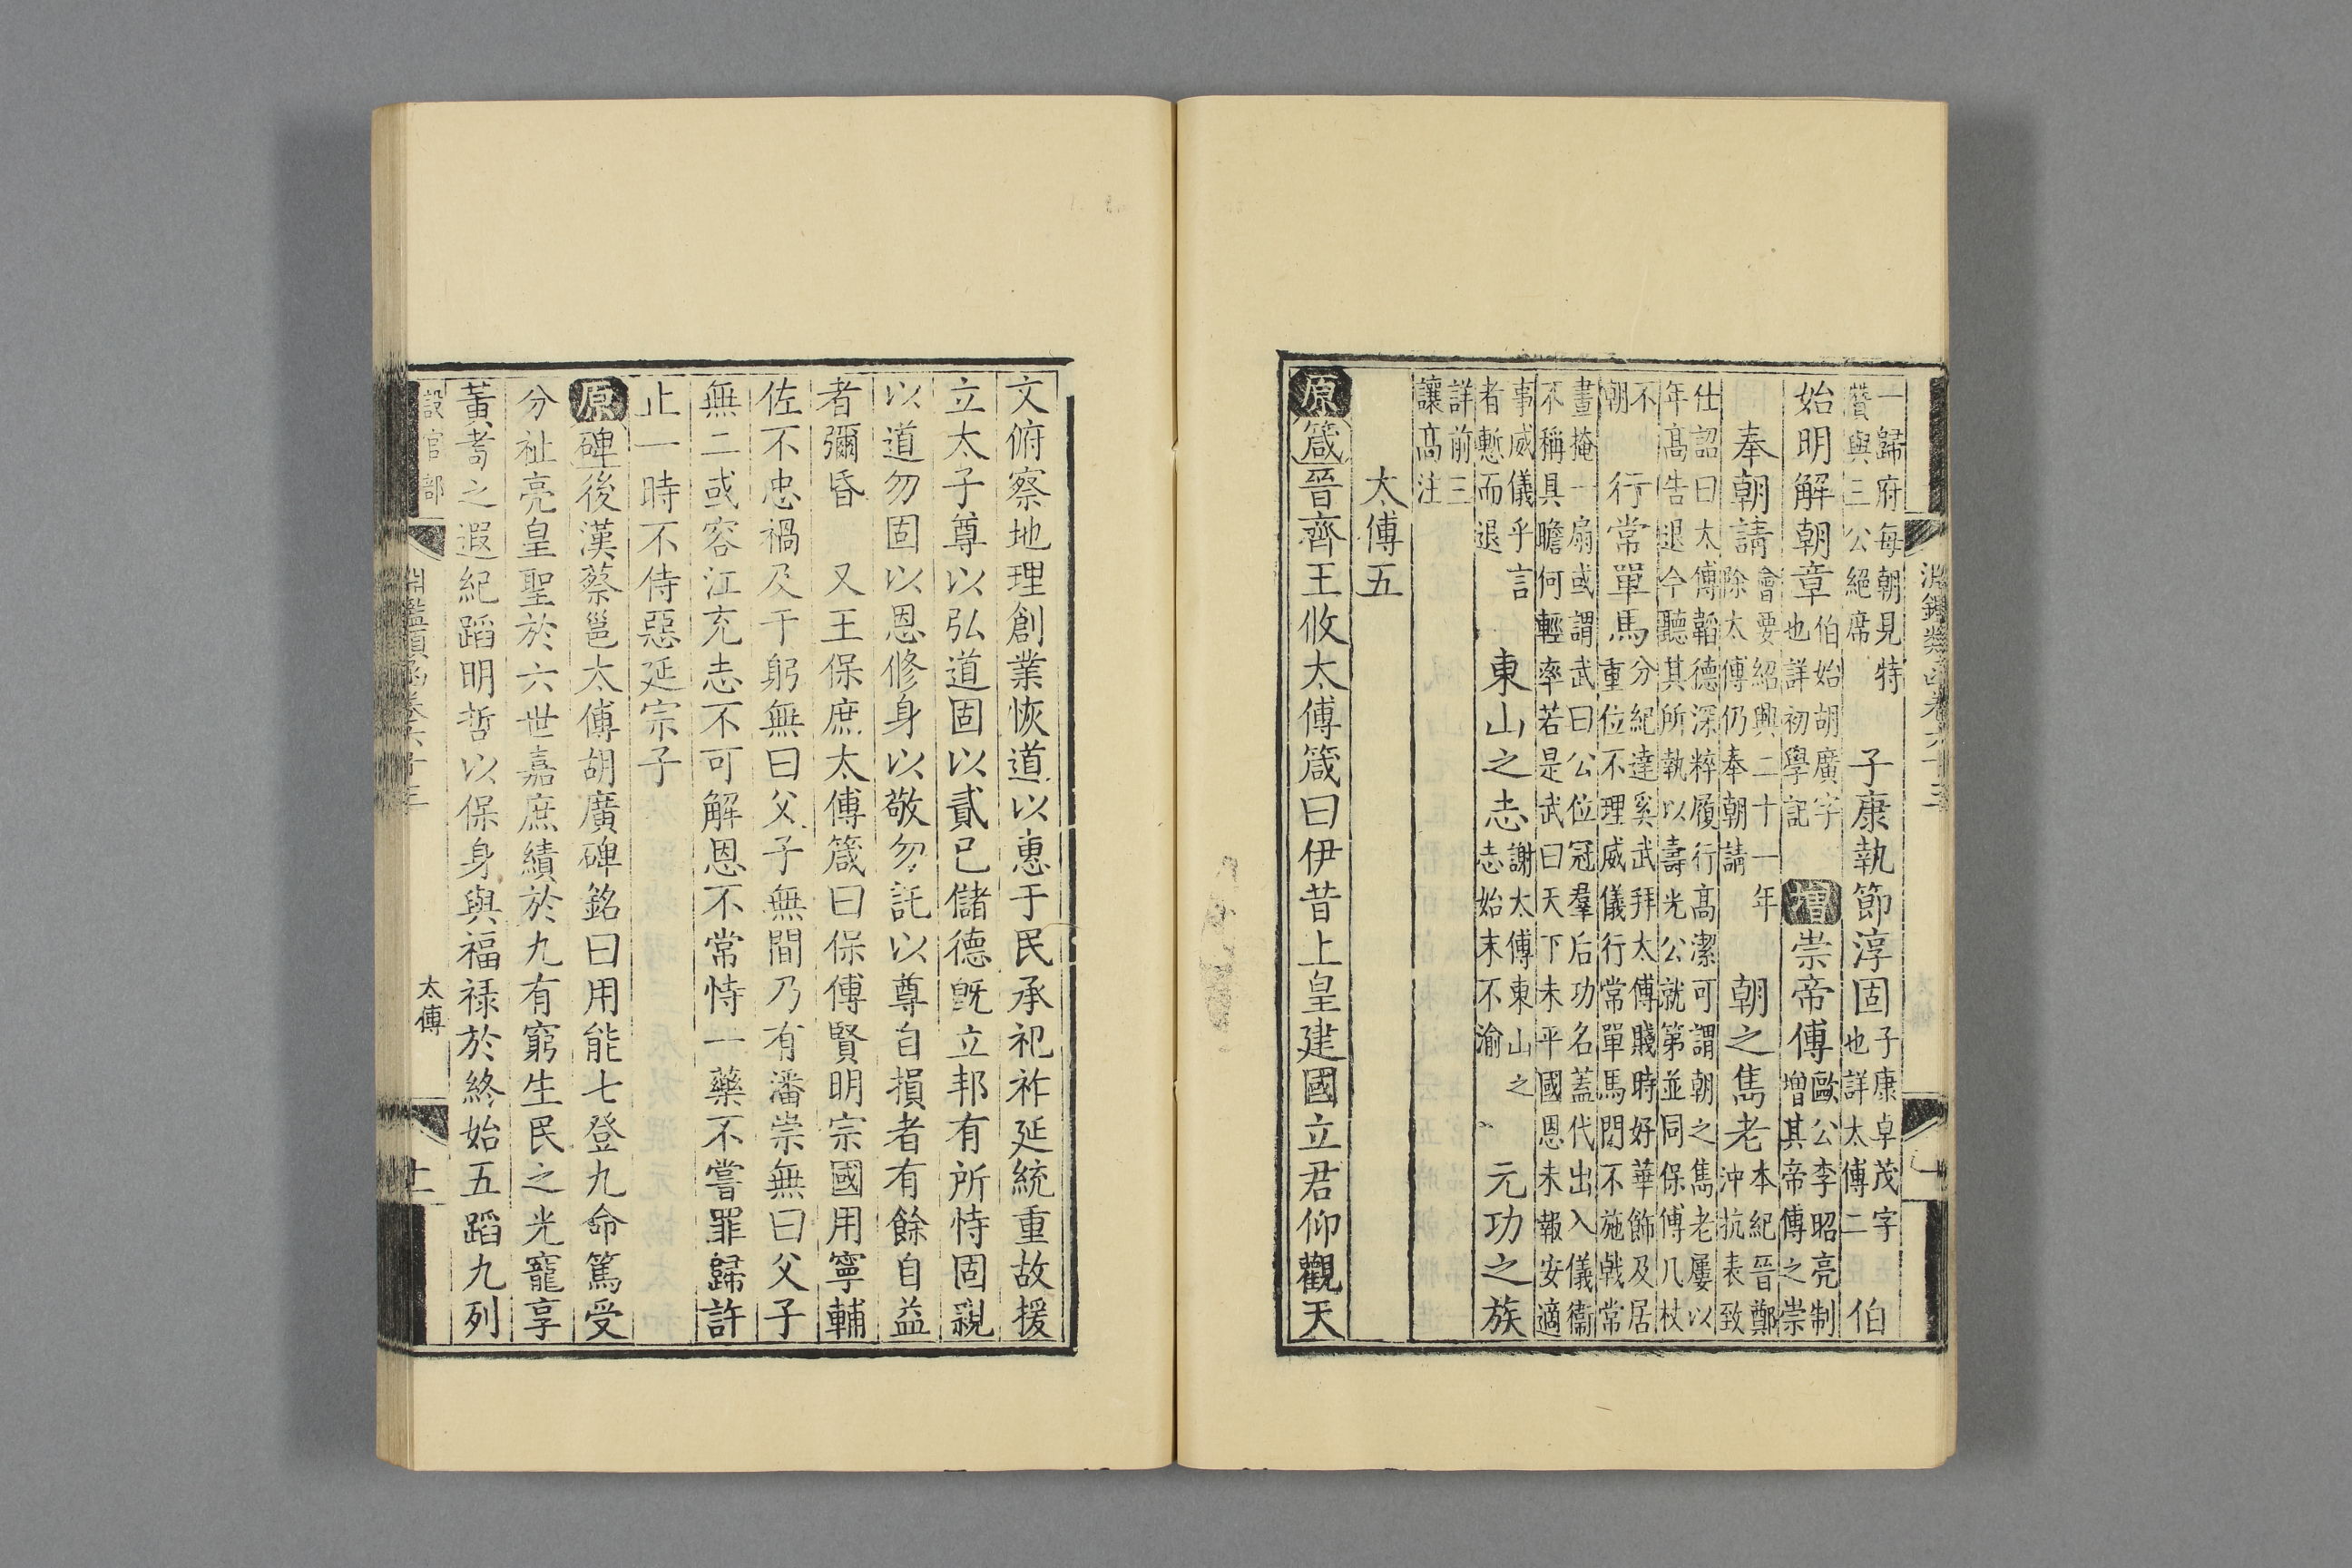 淵鑑類函卷六十三
一歸府每朝見特
贊與三公絕席
子康執節淳固
子康卓茂字
也詳太傅二
伯
始明解朝章
伯始胡廣字
也詳初學記
增崇帝傅
歐公李昭亮制
增其帝傅之崇
奉朝請
會要紹興二十一年
除太傅仍奉朝請
朝之雋老
本紀晉鄭
沖抗表致
仕詔曰太傅韜德深粹履行高潔可謂朝之雋老屢以
年高告退今聽其所執以壽光公就第並同保傅几杖
不
朝
行常單馬
分紀達奚武拜太傅賤時好華飾及居
重位不理威儀行常單馬門不施戟常
晝掩一扇或謂武曰公位冠羣后功名蓋代出入儀衞
不稱具瞻何輕率若是武曰天下未平國恩未報安適
事威儀乎言
者慙而退
東山之志
謝太傅東山之
志始末不渝
元功之族
詳前三
讓高注
太傅五
原箴晉齊王攸太傅箴曰伊昔上皇建國立君仰觀天
文俯察地理創業恢道以惠于民承祀祚延統重故援
立太子尊以弘道固以貳已儲德旣立邦有所恃固親
以道勿固以恩修身以敬勿託以尊自損者有餘自益
者彌昏　又王保庶太傅箴曰保傅賢明宗國用寧輔
佐不忠禍及于躬無曰父子無間乃有潘崇無曰父子
無二或容江充志不可解恩不常恃一藥不嘗罪歸許
止一時不侍惡延宗子
原碑後漢蔡邕太傅胡廣碑銘曰用能七登九命篤受
分祉亮皇聖於六世嘉庶績於九有窮生民之光寵享
黃耇之遐紀蹈明哲以保身與福祿於終始五蹈九列
設官部
淵鑑類函卷六十三
太傅